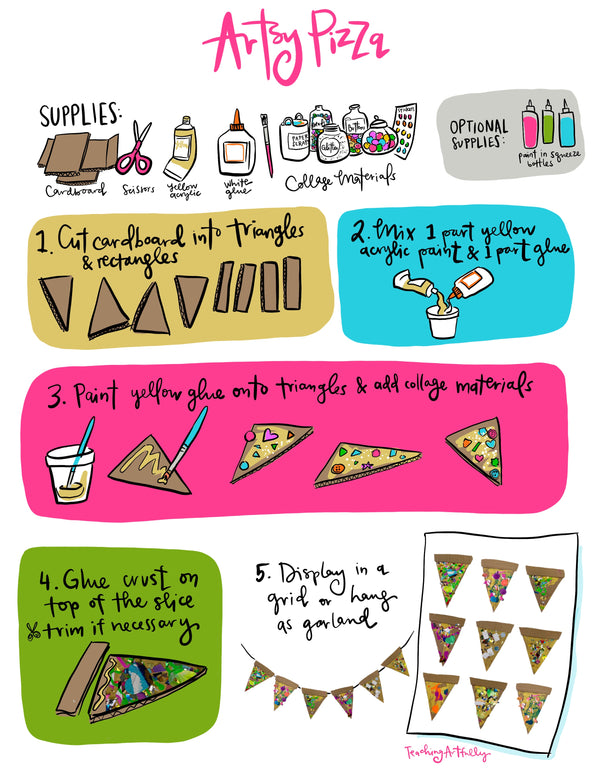 Artsy Pizza
SUPPLIES:
Cardboard
Scissors
yellow acrylic
white glue
PAPER SCRAPS
Buttons
Glitter
STICKERS
Collage Materials
OPTIONAL SUPPLIES:
paint in squeeze bottles
1. Cut cardboard into triangles
& rectangles
2. Mix 1 part yellow
acrylic paint & 1 part glue
3. Paint yellow glue onto triangles & add collage materials
4. Glue crust on
top of the slice
trim if necessary
5. Display in a
grid or hang
as garland
TeachingArtfully